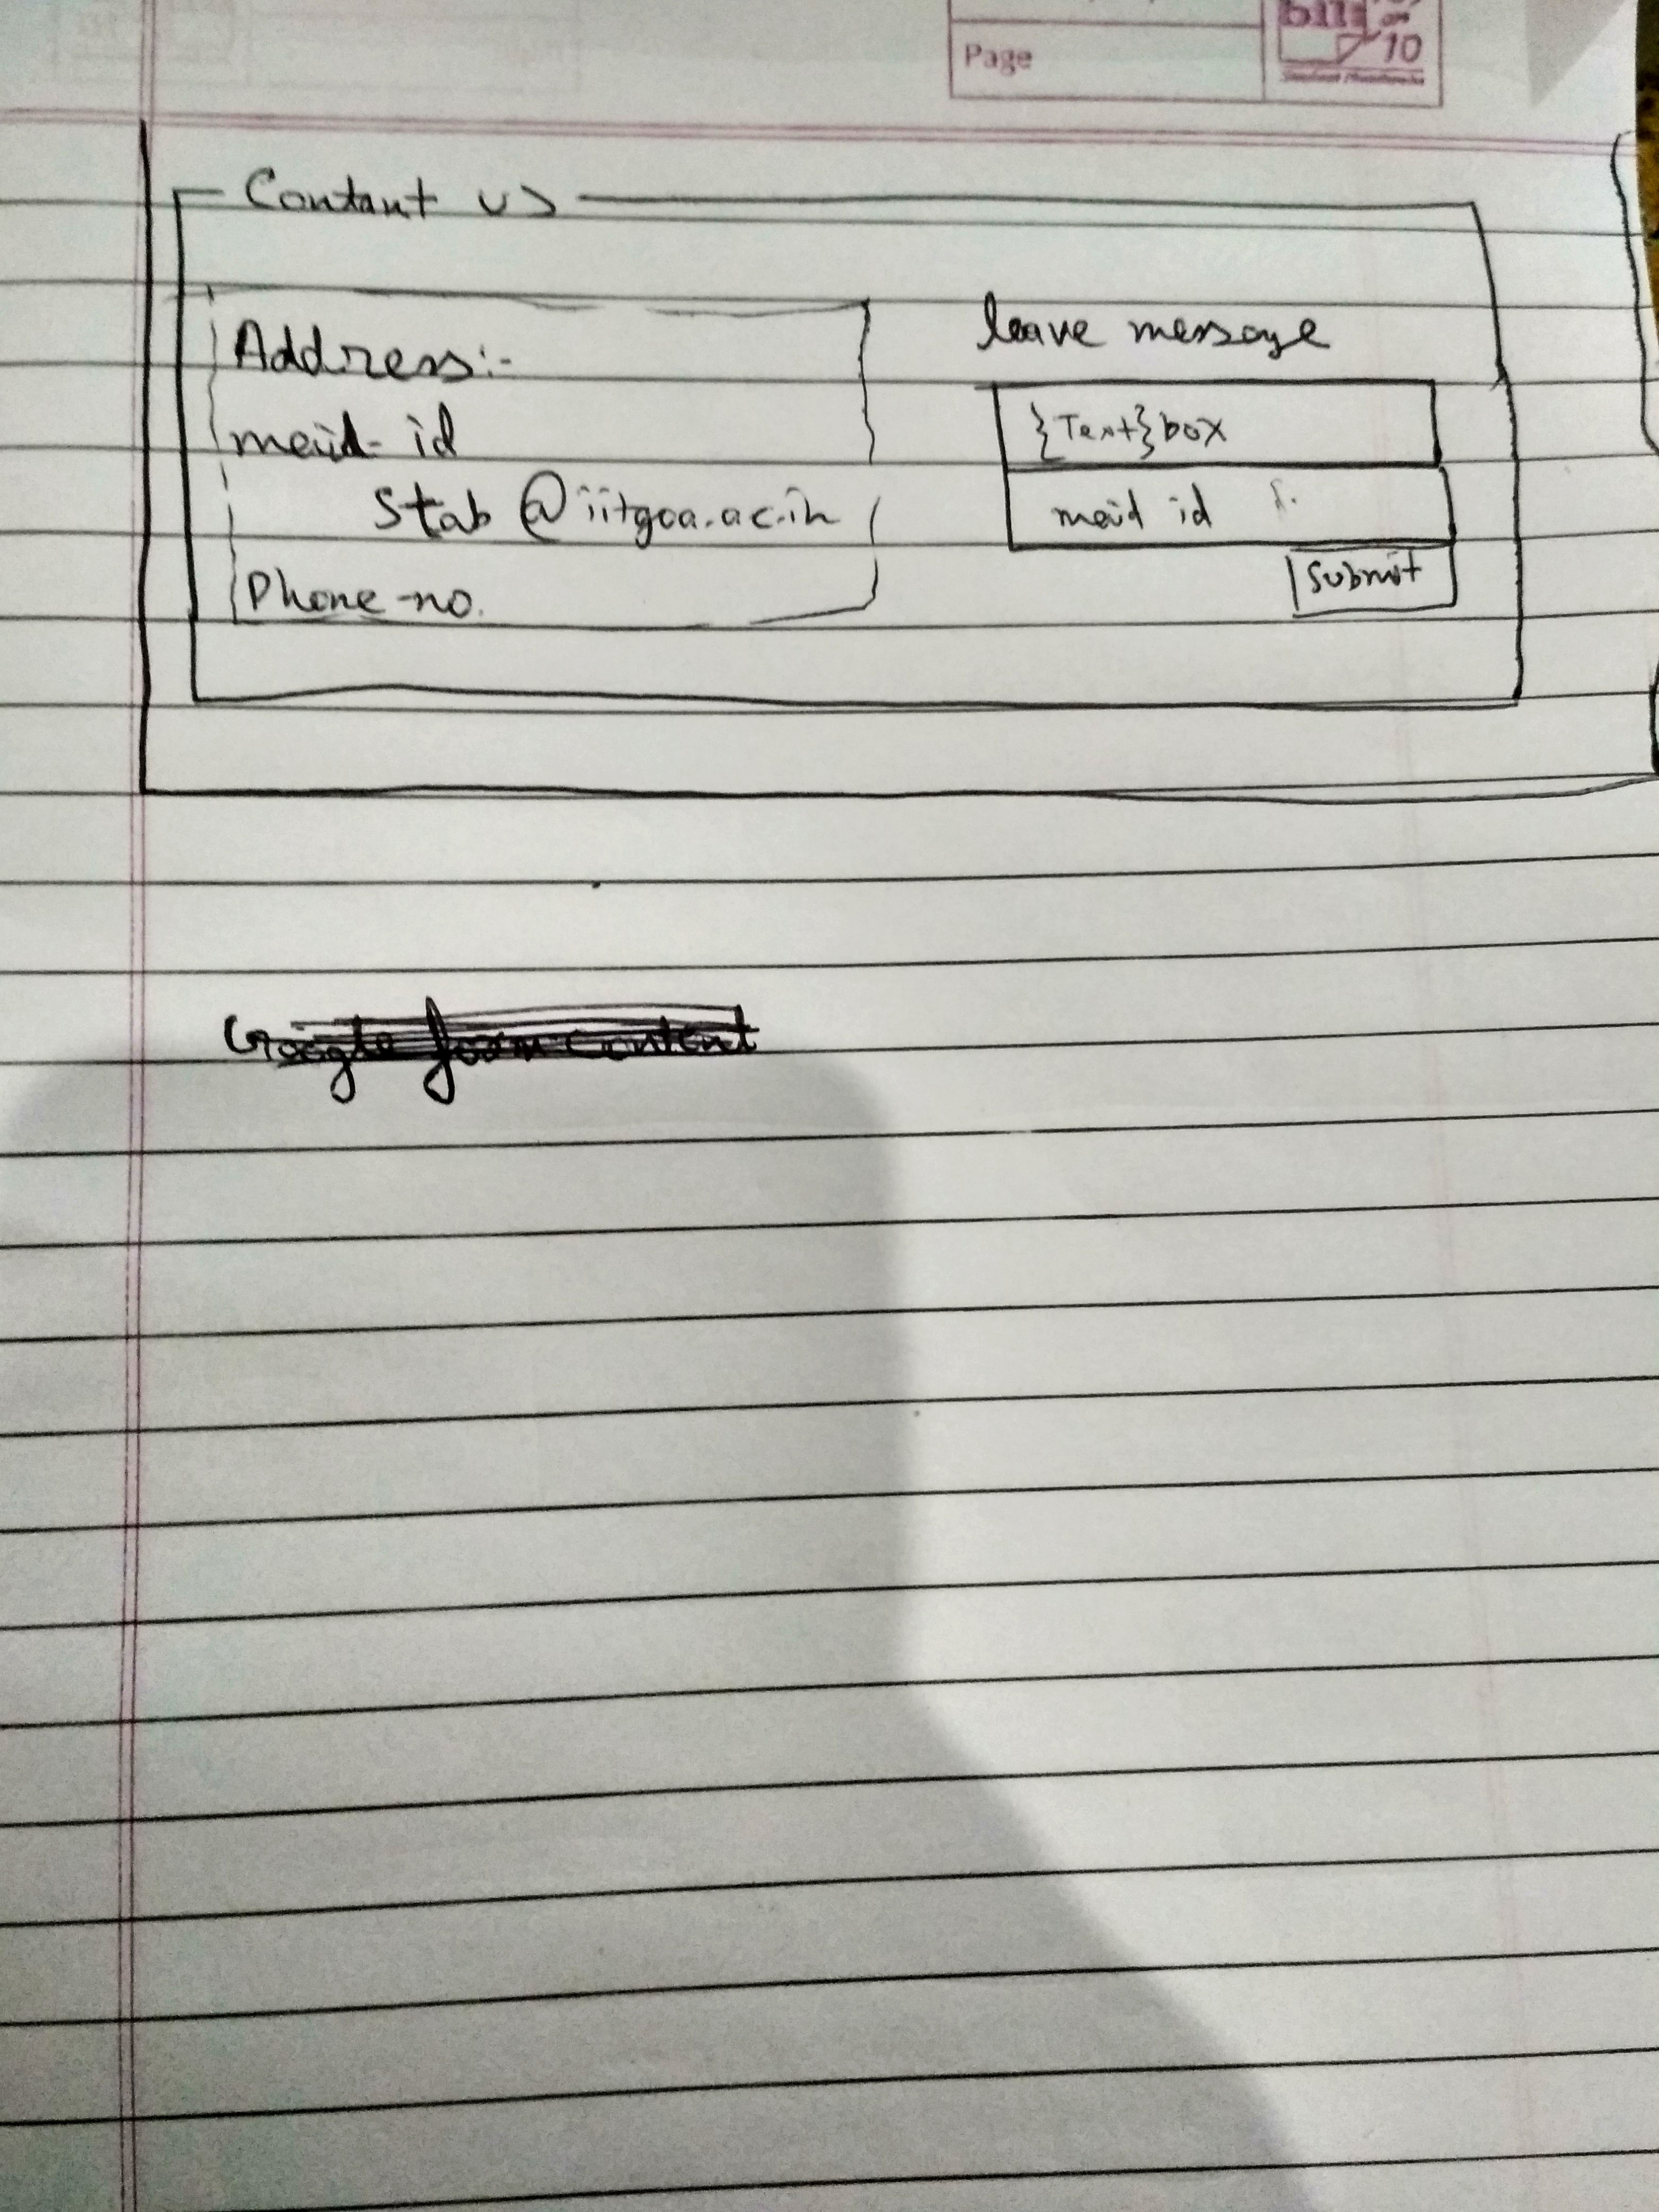 Page
bilt
10
Contant us
Address:-
mail-id
Stab @iitgoa.ac.in
Phone-no.
leave message
{Text}box
mail id
Submit
Google form content